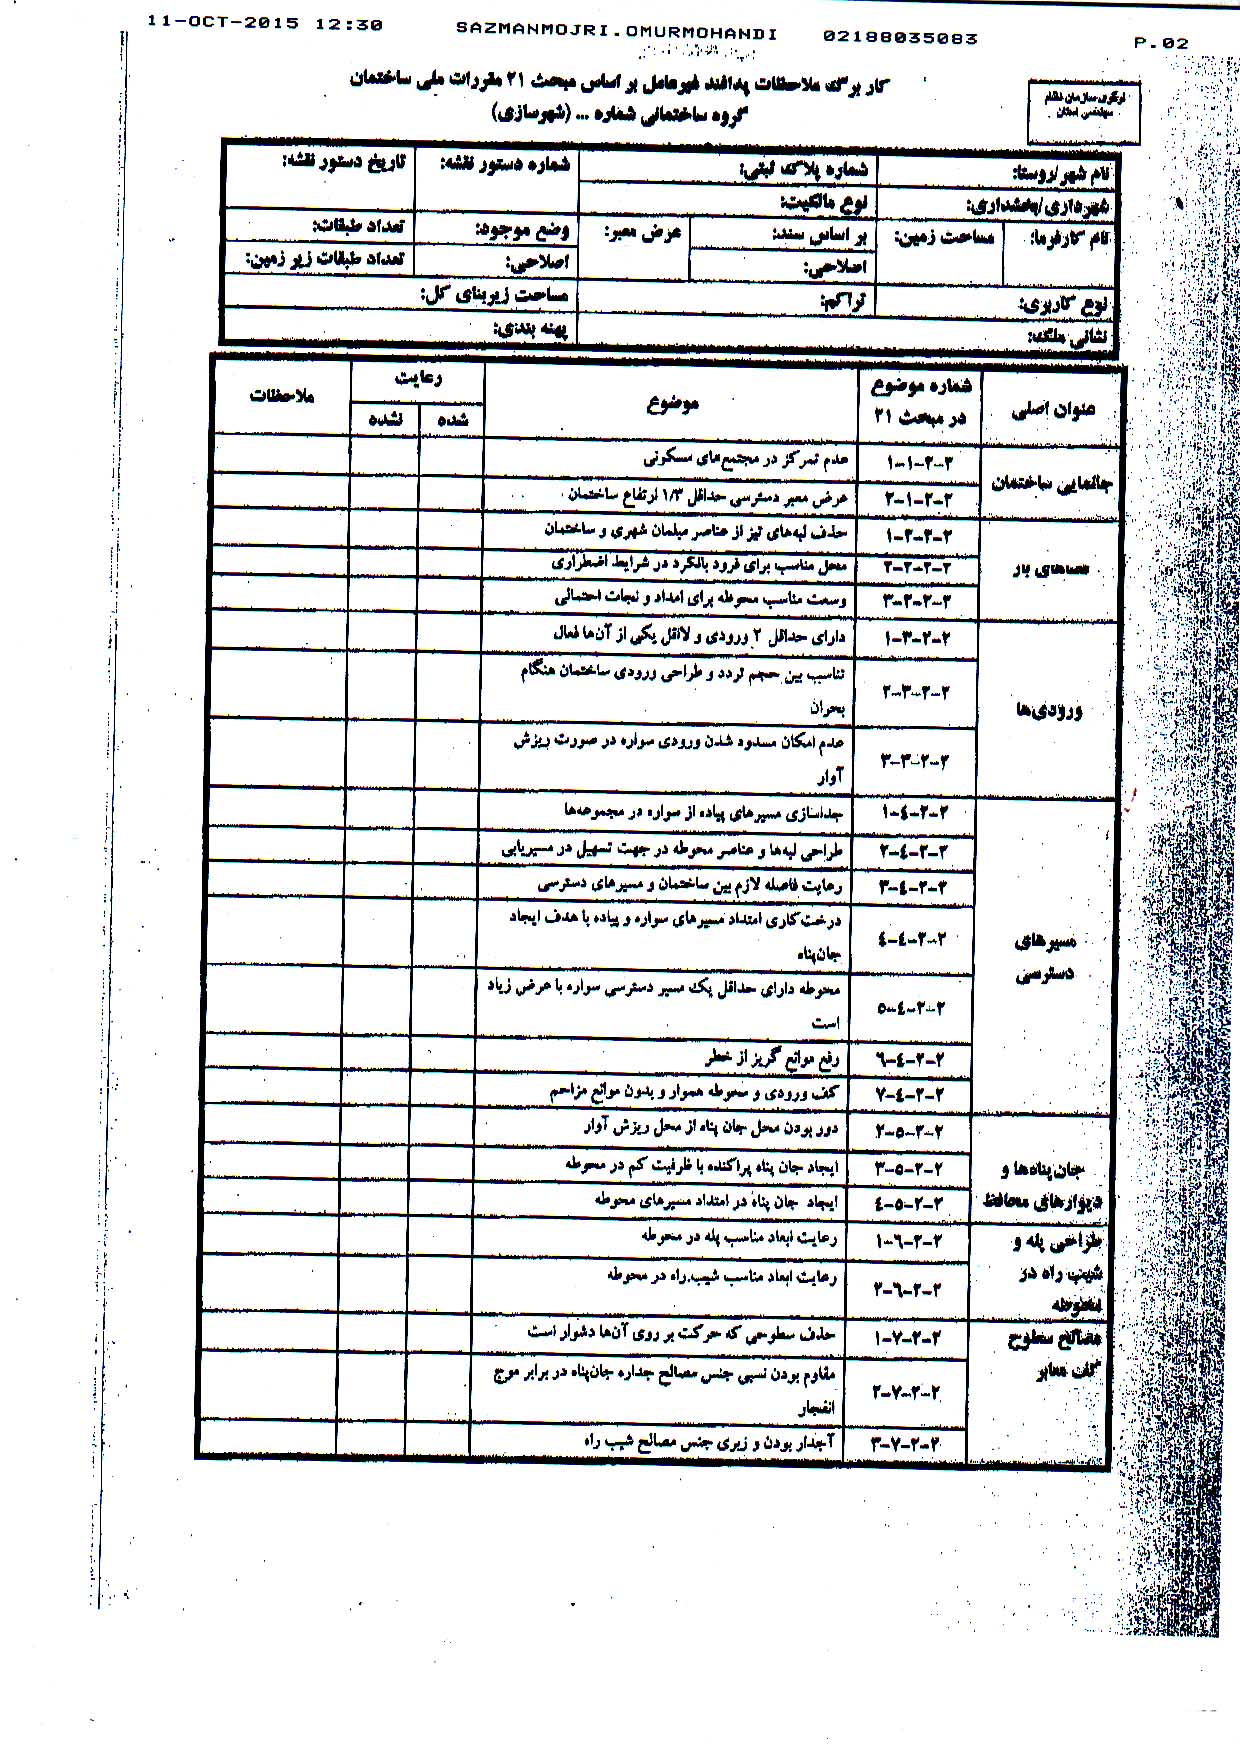 11-OCT-2015 12:30 SAZMANMOJRI.OMURMOHANDI 02188035083 P.02
کاربرگ ملاحظات پدافند غیرعامل بر اساس مبحث ۲۱ مقررات ملی ساختمان
گروه ساختمانی شماره ... (شهرسازی)
لوگوی سازمان نظام
مهندسی استان
نام شهر/روستا: شماره پلاک ثبتی: شماره دستور نقشه: تاریخ دستور نقشه:
شهرداری/بخشداری: نوع مالکیت:
نام کارفرما: مساحت زمین: بر اساس سند: عرض معبر: وضع موجود: تعداد طبقات:
اصلاحی: اصلاحی: تعداد طبقات زیر زمین:
نوع کاربری: تراکم: مساحت زیربنای کل:
نشانی ملک: پهنه بندی:
عنوان اصلی شماره موضوع در مبحث ۲۱ موضوع رعایت ملاحظات
شده نشده
جانمایی ساختمان
۲-۲-۱-۱ عدم تمرکز در مجتمع‌های مسکونی
۲-۲-۱-۲ عرض معبر دسترسی حداقل ۱/۳ ارتفاع ساختمان
فضاهای باز
۲-۲-۲-۱ حذف لبه‌های تیز از عناصر مبلمان شهری و ساختمان
۲-۲-۲-۲ محل مناسب برای فرود بالگرد در شرایط اضطراری
۲-۲-۲-۳ وسعت مناسب محوطه برای امداد و نجات احتمالی
ورودی‌ها
۲-۲-۳-۱ دارای حداقل ۲ ورودی و لااقل یکی از آن‌ها فعال
۲-۲-۳-۲ تناسب بین حجم تردد و طراحی ورودی ساختمان هنگام
بحران
۲-۲-۳-۳ عدم امکان مسدود شدن ورودی سواره در صورت ریزش
آوار
مسیرهای
دسترسی
۲-۲-٤-۱ جداسازی مسیرهای پیاده از سواره در مجموعه‌ها
۲-۲-٤-۲ طراحی لبه‌ها و عناصر محوطه در جهت تسهیل در مسیریابی
۲-۲-٤-۳ رعایت فاصله لازم بین ساختمان و مسیرهای دسترسی
۲-۲-٤-٤ درخت‌کاری امتداد مسیرهای سواره و پیاده با هدف ایجاد
جان‌پناه
۲-۲-٤-۵ محوطه دارای حداقل یک مسیر دسترسی سواره با عرض زیاد
است
۲-۲-٤-٦ رفع موانع گریز از خطر
۲-۲-٤-۷ کف ورودی و محوطه هموار و بدون موانع مزاحم
جان‌پناه‌ها و
دیوارهای محافظ
۲-۲-۵-۲ دور بودن محل جان پناه از محل ریزش آوار
۲-۲-۵-۳ ایجاد جان پناه پراکنده با ظرفیت کم در محوطه
۲-۲-۵-٤ ایجاد جان پناه در امتداد مسیرهای محوطه
طراحی پله و
شیب راه در
محوطه
۲-۲-٦-۱ رعایت ابعاد مناسب پله در محوطه
۲-۲-٦-۲ رعایت ابعاد مناسب شیب راه در محوطه
مصالح سطوح
کف معابر
۲-۲-۷-۱ حذف سطوحی که حرکت بر روی آن‌ها دشوار است
۲-۲-۷-۲ مقاوم بودن نسبی جنس مصالح جداره جان‌پناه در برابر موج
انفجار
۲-۲-۷-۳ آجدار بودن و زبری جنس مصالح شیب راه